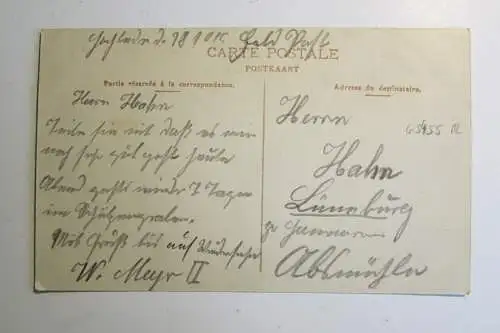 Feld Post
CARTE POSTALE
POSTKAART
Partie réservée à la correspondance.
Adresse du destinataire.
Herrn Hahn
Teile sie mit daß es mir
noch sehr gut geht heute
Abend gehts wieder 7 Tagen
im Schützengraben.
Mit Gruß bis auf Wiedersehn
W. Meyr II
Herrn
Hahn
Lüneburg
Abtsmühle